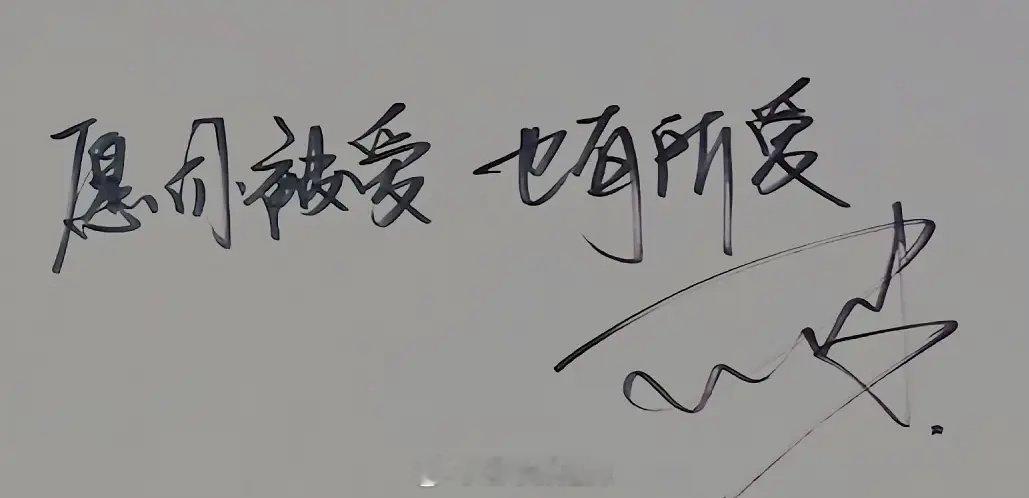 愿被爱 也有所爱